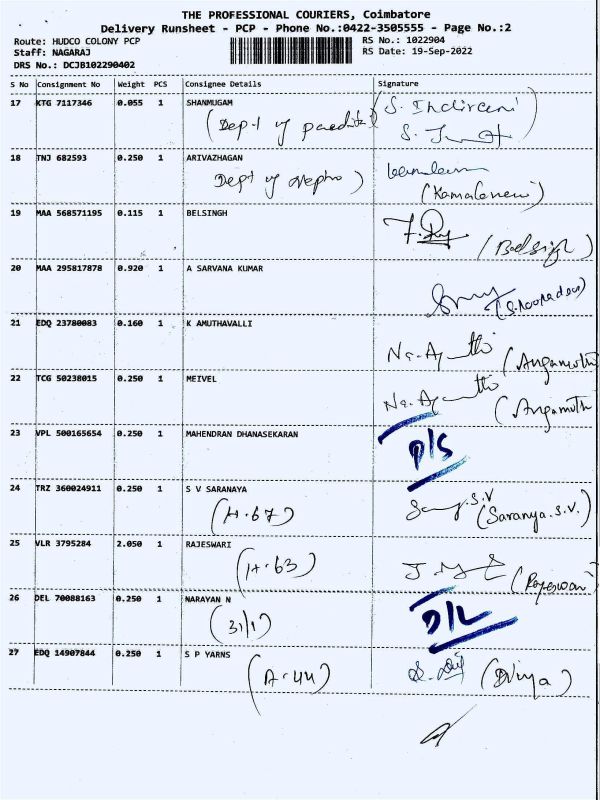 THE PROFESSIONAL COURIERS, Coimbatore
Delivery Runsheet - PCP - Phone No.:0422-3505555 - Page No.:2
Route: HUDCO COLONY PCP
RS No.: 1022904
Staff: NAGARAJ
RS Date: 19-Sep-2022
DRS No.: DCJB102290402
S No Consignment No Weight PCS Consignee Details Signature
17 KTG 7117346 0.055 1 SHANMUGAM
(Dept of
18 TNJ 682593 0.250 1 ARIVAZHAGAN
Dept of nephro)
19 MAA 568571195 0.115 1 BELSINGH
20 MAA 295817878 0.920 1 A SARVANA KUMAR
21 EDQ 23780083 0.160 1 K AMUTHAVALLI
(Angamuth
22 TCG 50238015 0.250 1 MEIVEL
(Angamuth
23 VPL 500165654 0.250 1 MAHENDRAN DHANASEKARAN D/S
24 TRZ 360024911 0.250 1 S V SARANAYA
(H-67) (Saranya.S.V.)
25 VLR 3795284 2.050 1 RAJESWARI
(H-63)
26 DEL 70088163 0.250 1 NARAYAN N D/L
(31/1)
27 EDQ 14907844 0.250 1 S P YARNS
(A-44) (Divya)